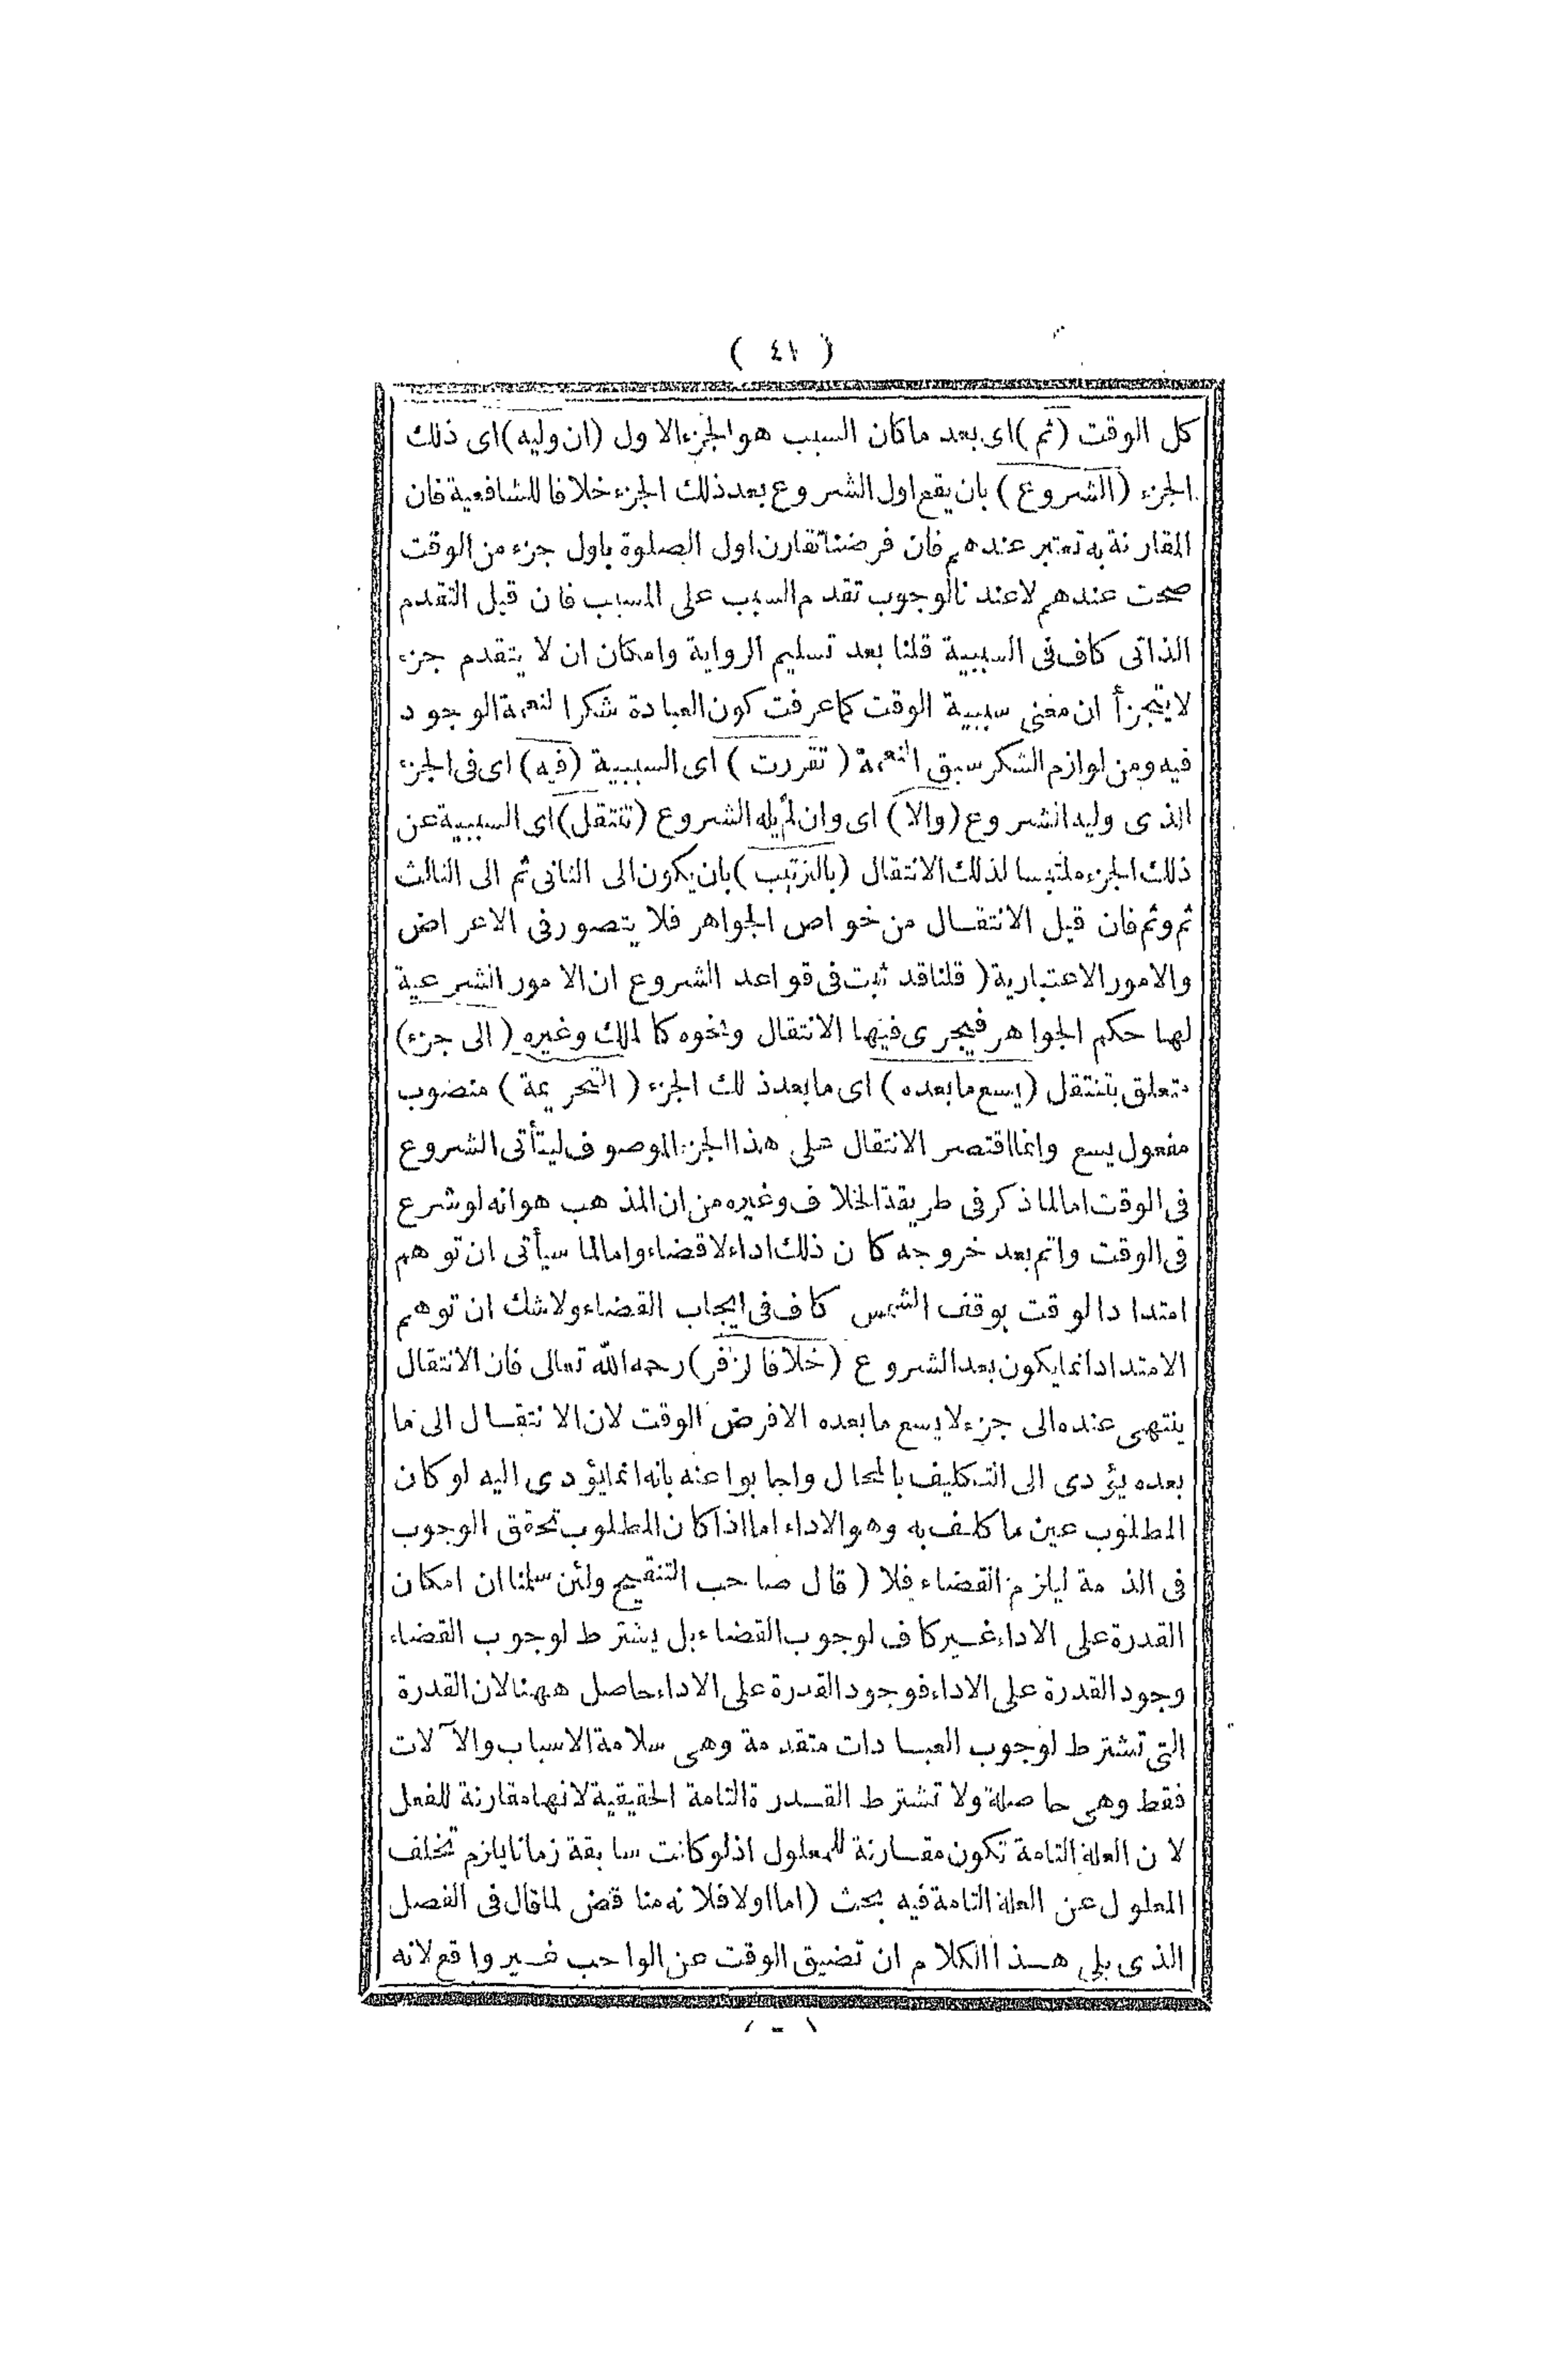 ( ٤١ )
كل الوقت (ثم) اى بعد ماكان السبب هو الجزء الاول (ان وليه) اى ذلك
الجزء (الشروع) بان يقع اول الشروع بعد ذلك الجزء خلافا للشافعية فان
المقارنة به تعتبر عندهم فان فرضنا تقارن اول الصلوة باول جزء من الوقت
صحت عندهم لاعندنا لوجوب تقدم السبب على المسبب فان قيل التقدم
الذاتى كاف فى السببية قلنا بعد تسليم الرواية وامكان ان لا يتقدم جزء
لايتجزأ ان معنى سببية الوقت كماعرفت كون العبادة شكرا لنعمة الوجود
فيه ومن لوازم الشكر سبق النعمة (تقررت) اى السببية (فيه) اى فى الجزء
الذى وليه الشروع (والا) اى وان لم يله الشروع (تنتقل) اى السببية عن
ذلك الجزء ملتبسا لذلك الانتقال (بالترتيب) بان يكون الى الثانى ثم الى الثالث
ثم وثم فان قيل الانتقال من خواص الجواهر فلا يتصور فى الاعراض
والامور الاعتبارية (قلنا قد ثبت فى قواعد الشروع ان الامور الشرعية
لها حكم الجواهر فيجرى فيها الانتقال ونحوه كالملك وغيره (الى جزء)
متعلق بتنتقل (يسع مابعده) اى مابعد ذلك الجزء (التحريمة) منصوب
مفعول يسع وانما اقتصر الانتقال على هذا الجزء الموصوف ليتأتى الشروع
فى الوقت اما لما ذكر فى طريقة الخلاف وغيره من ان المذهب هو انه لو شرع
فى الوقت واتم بعد خروجه كان ذلك اداء لاقضاء واما لما سيأتى ان توهم
امتداد الوقت بوقف الشمس كاف فى ايجاب القضاء ولاشك ان توهم
الامتداد انما يكون بعد الشروع (خلافا لزفر) رحمه الله تعالى فان الانتقال
ينتهى عنده الى جزء لايسع مابعده الافرض الوقت لان الانتقال الى ما
بعده يؤدى الى التكليف بالمحال واجابوا عنه بانه انما يؤدى اليه لو كان
المطلوب عين ما كلف به وهو الاداء اما اذا كان المطلوب تحقق الوجوب
فى الذمة ليلزم القضاء فلا (قال صاحب التنقيح ولئن سلمنا ان امكان
القدرة على الاداء غير كاف لوجوب القضاء بل يشترط لوجوب القضاء
وجود القدرة على الاداء فوجود القدرة على الاداء حاصل ههنا لان القدرة
التى تشترط لوجوب العبادات متقدمة وهى سلامة الاسباب والآلات
فقط وهى حاصلة ولا تشترط القدرة التامة الحقيقية لانها مقارنة للفعل
لان العلة التامة تكون مقارنة للمعلول اذ لو كانت سابقة زمانا يلزم تخلف
المعلول عن العلة التامة فيه بحث (اما اولا فلانه مناقض لما قال فى الفصل
الذى يلى هذا الكلام ان تضيق الوقت عن الواجب غير واقع لانه